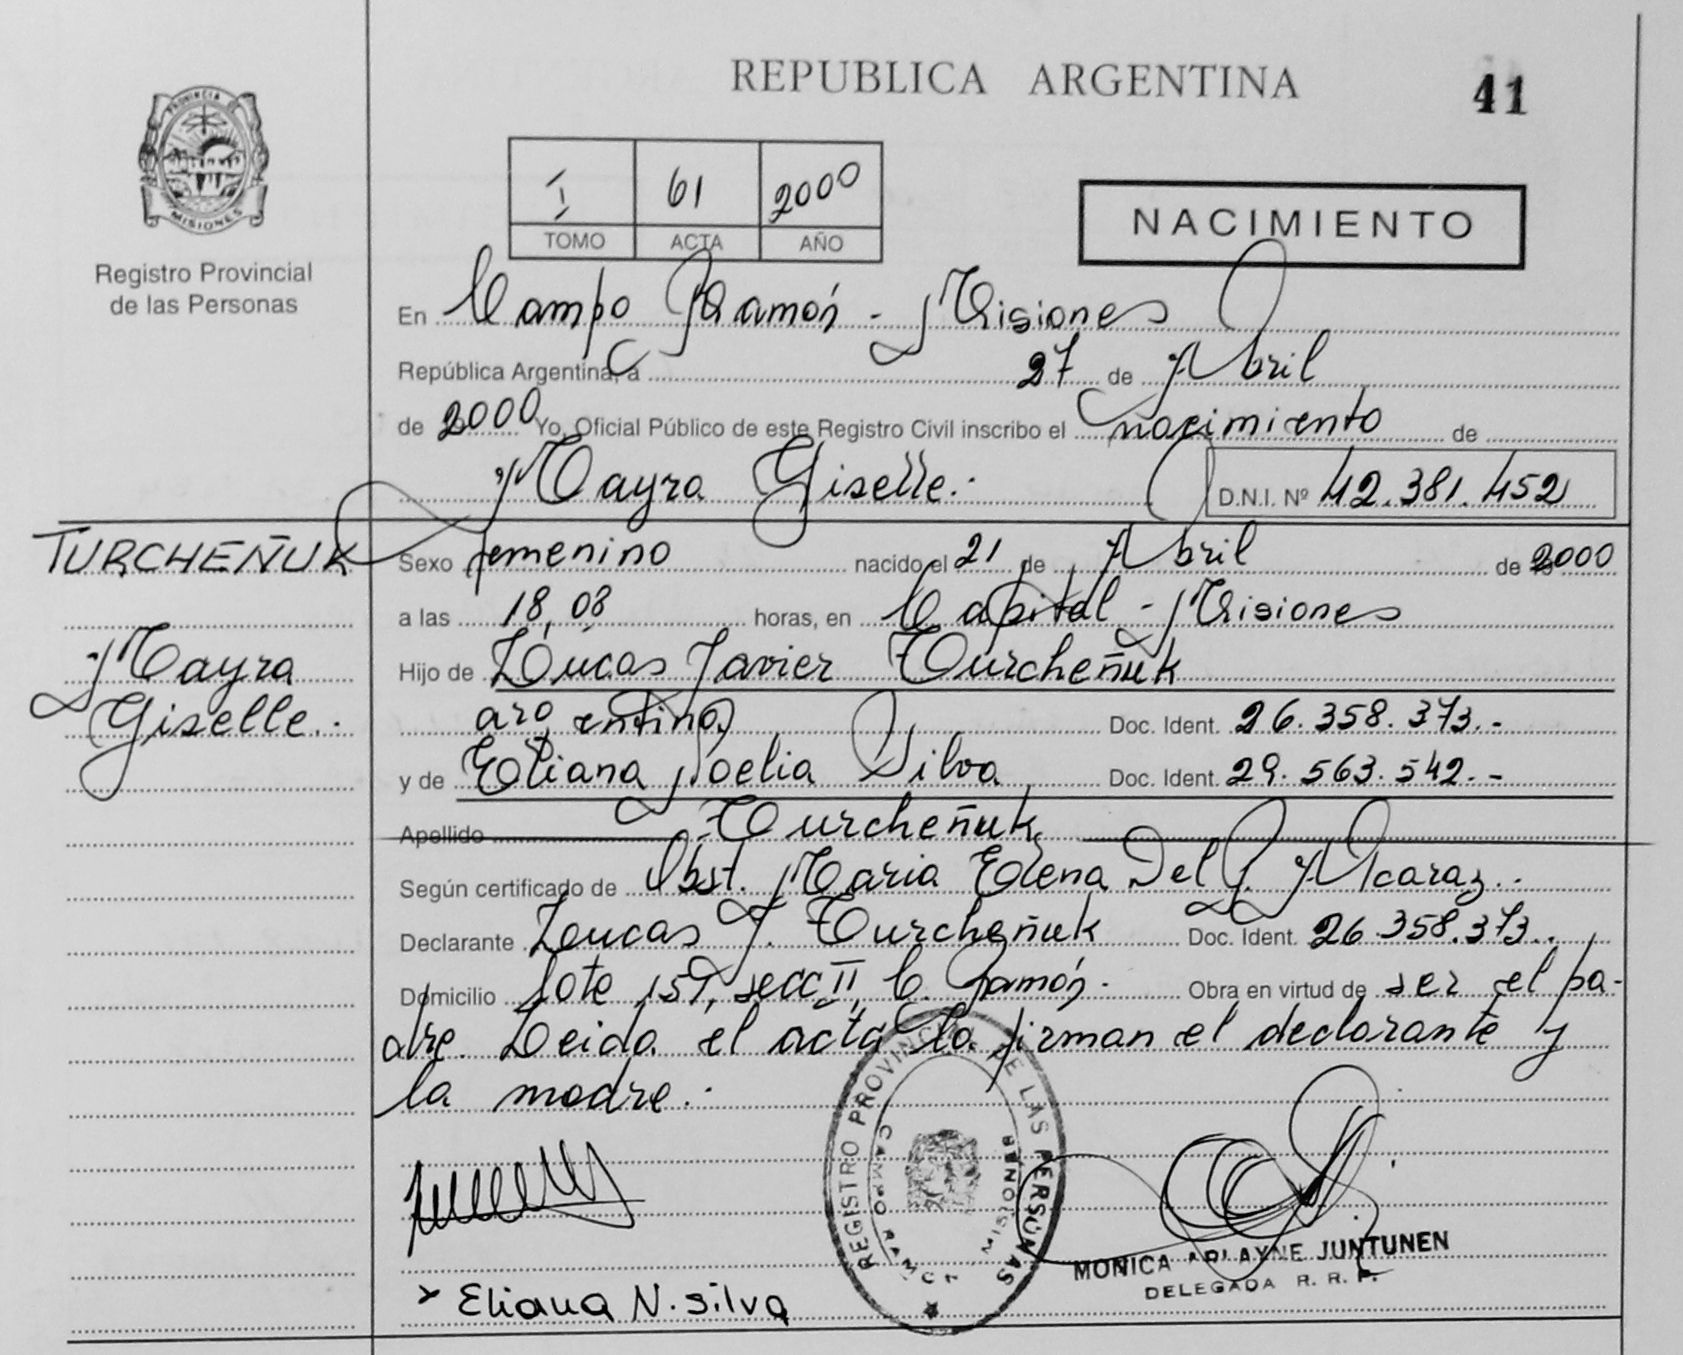 REPUBLICA ARGENTINA
41
PROVINCIA DE
MISIONES
Registro Provincial
de las Personas
I 61 2000
TOMO ACTA AÑO
NACIMIENTO
En Campo Ramón - Misiones
República Argentina, a 27 de Abril
de 2000 Yo, Oficial Público de este Registro Civil inscribo el nacimiento de
Mayra Giselle.-
D.N.I. Nº 42.381.452
TURCHEÑUK
Mayra
Giselle.-
Sexo femenino nacido el 21 de Abril de 2000
a las 18,08 horas, en Capital - Misiones
Hijo de Lucas Javier Turcheñuk
argentino Doc. Ident. 26.358.373.-
y de Eliana Noelia Silva Doc. Ident. 29.563.542.-
Apellido Turcheñuk
Según certificado de Obst. Maria Elena Del G. Alcaraz.-
Declarante Lucas J. Turcheñuk Doc. Ident. 26.358.373.-
Domicilio lote 157, secc II, C. Ramón. Obra en virtud de ser el pa-
dre. Leida el acta la firman el declarante y
la madre.-
REGISTRO PROVINCIAL DE LAS PERSONAS
CAMPO RAMON - MISIONES
MONICA ARLAYNE JUNTUNEN
DELEGADA R. R. P.
Eliana N. Silva